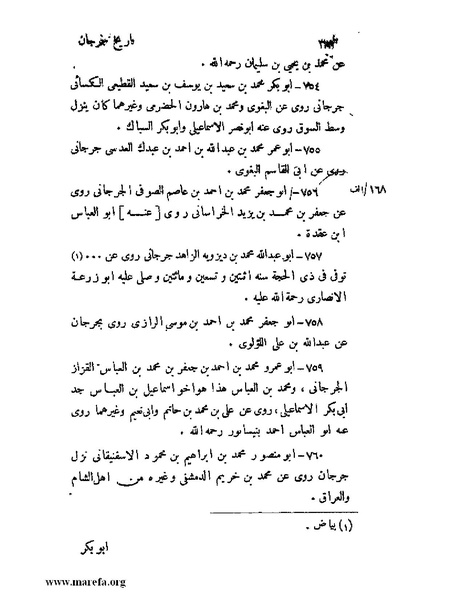 تاريخ جرجان
عن محمد بن يحيى بن سليمان رحمه الله .
٧٥٤- ابو بكر محمد بن سعيد بن يوسف بن سعيد القطيعى الكسائى
جرجانى روى عن البغوى ومحمد بن هارون الحضرمى وغيرهما كان ينزل
وسط السوق روى عنه ابونصر الاسماعيلى وابوبكر السباك .
٧٥٥- ابو عمر محمد بن عبدالله بن احمد بن عبدك العدسى جرجانى
روى عن ابى القاسم البغوى .
١٦٨/الف ٧٥٦- ابو جعفر محمد بن احمد بن عاصم الصوفى الجرجانى روى
عن جعفر بن محمد بن يزيد الخراسانى روى [ عنه ] ابو العباس
ابن عقدة .
٧٥٧- ابو عبدالله محمد بن ديزويه الزاهد جرجانى روى عن ٠٠٠ (١)
توفى فى ذى الحجة سنه اثنتين و تسعين و مائتين و صلى عليه ابو زرعة
الانصارى رحمة الله عليه .
٧٥٨- ابو جعفر محمد بن احمد بن موسى الرازى روى بجرجان
عن عبدالله بن على اللؤلوى .
٧٥٩- ابو عمرو محمد بن احمد بن جعفر بن محمد بن العباس القزاز
الجرجانى ، ومحمد بن العباس هذا هو اخو اسماعيل بن العباس جد
ابى بكر الاسماعيلى، روى عن على بن محمد بن حاتم وابى نعيم وغيرهما روى
عنه ابو العباس احمد بنيسابور رحمه الله .
٧٦٠- ابو منصور محمد بن ابراهيم بن محمود الاسفنيقانى نزل
جرجان روى عن محمد بن خريم الدمشقى وغيره من اهل الشام
والعراق .
(١) بياض .
ابو بكر
www.marefa.org